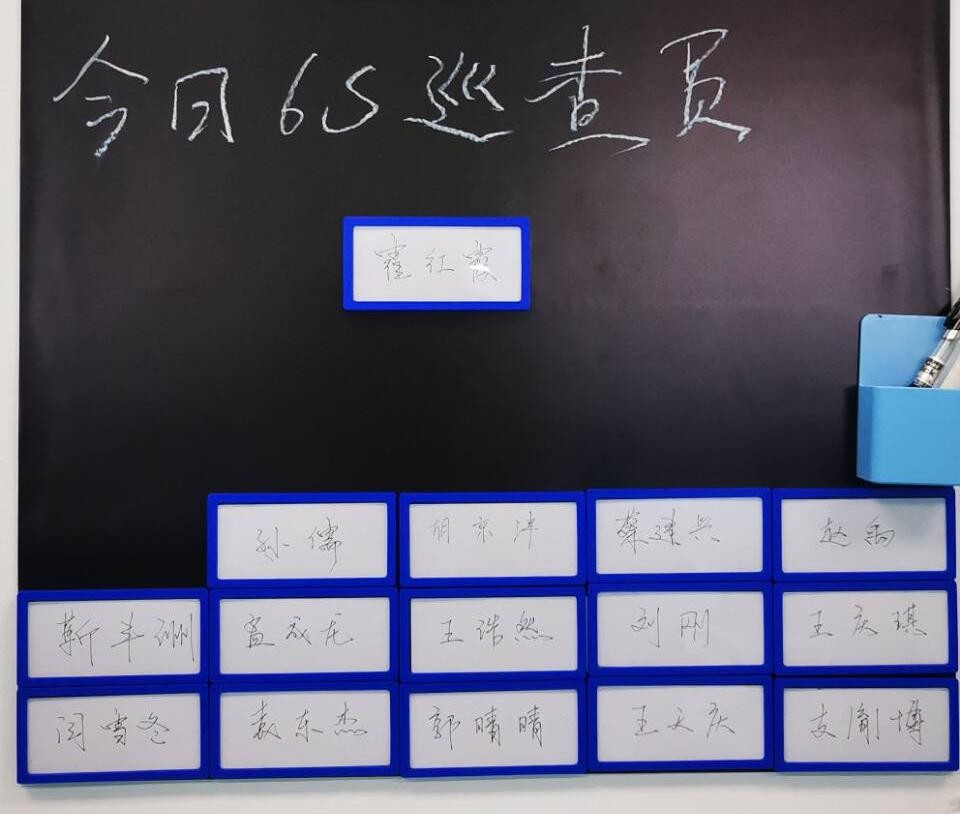 今日6S巡查员
霍红霞
孙儒 胡京津 蔡建兴 赵雨
靳丰洲 孟成龙 王浩然 刘刚 王庆琪
闫雪冬 袁东杰 郭晴晴 王天庆 支胤博